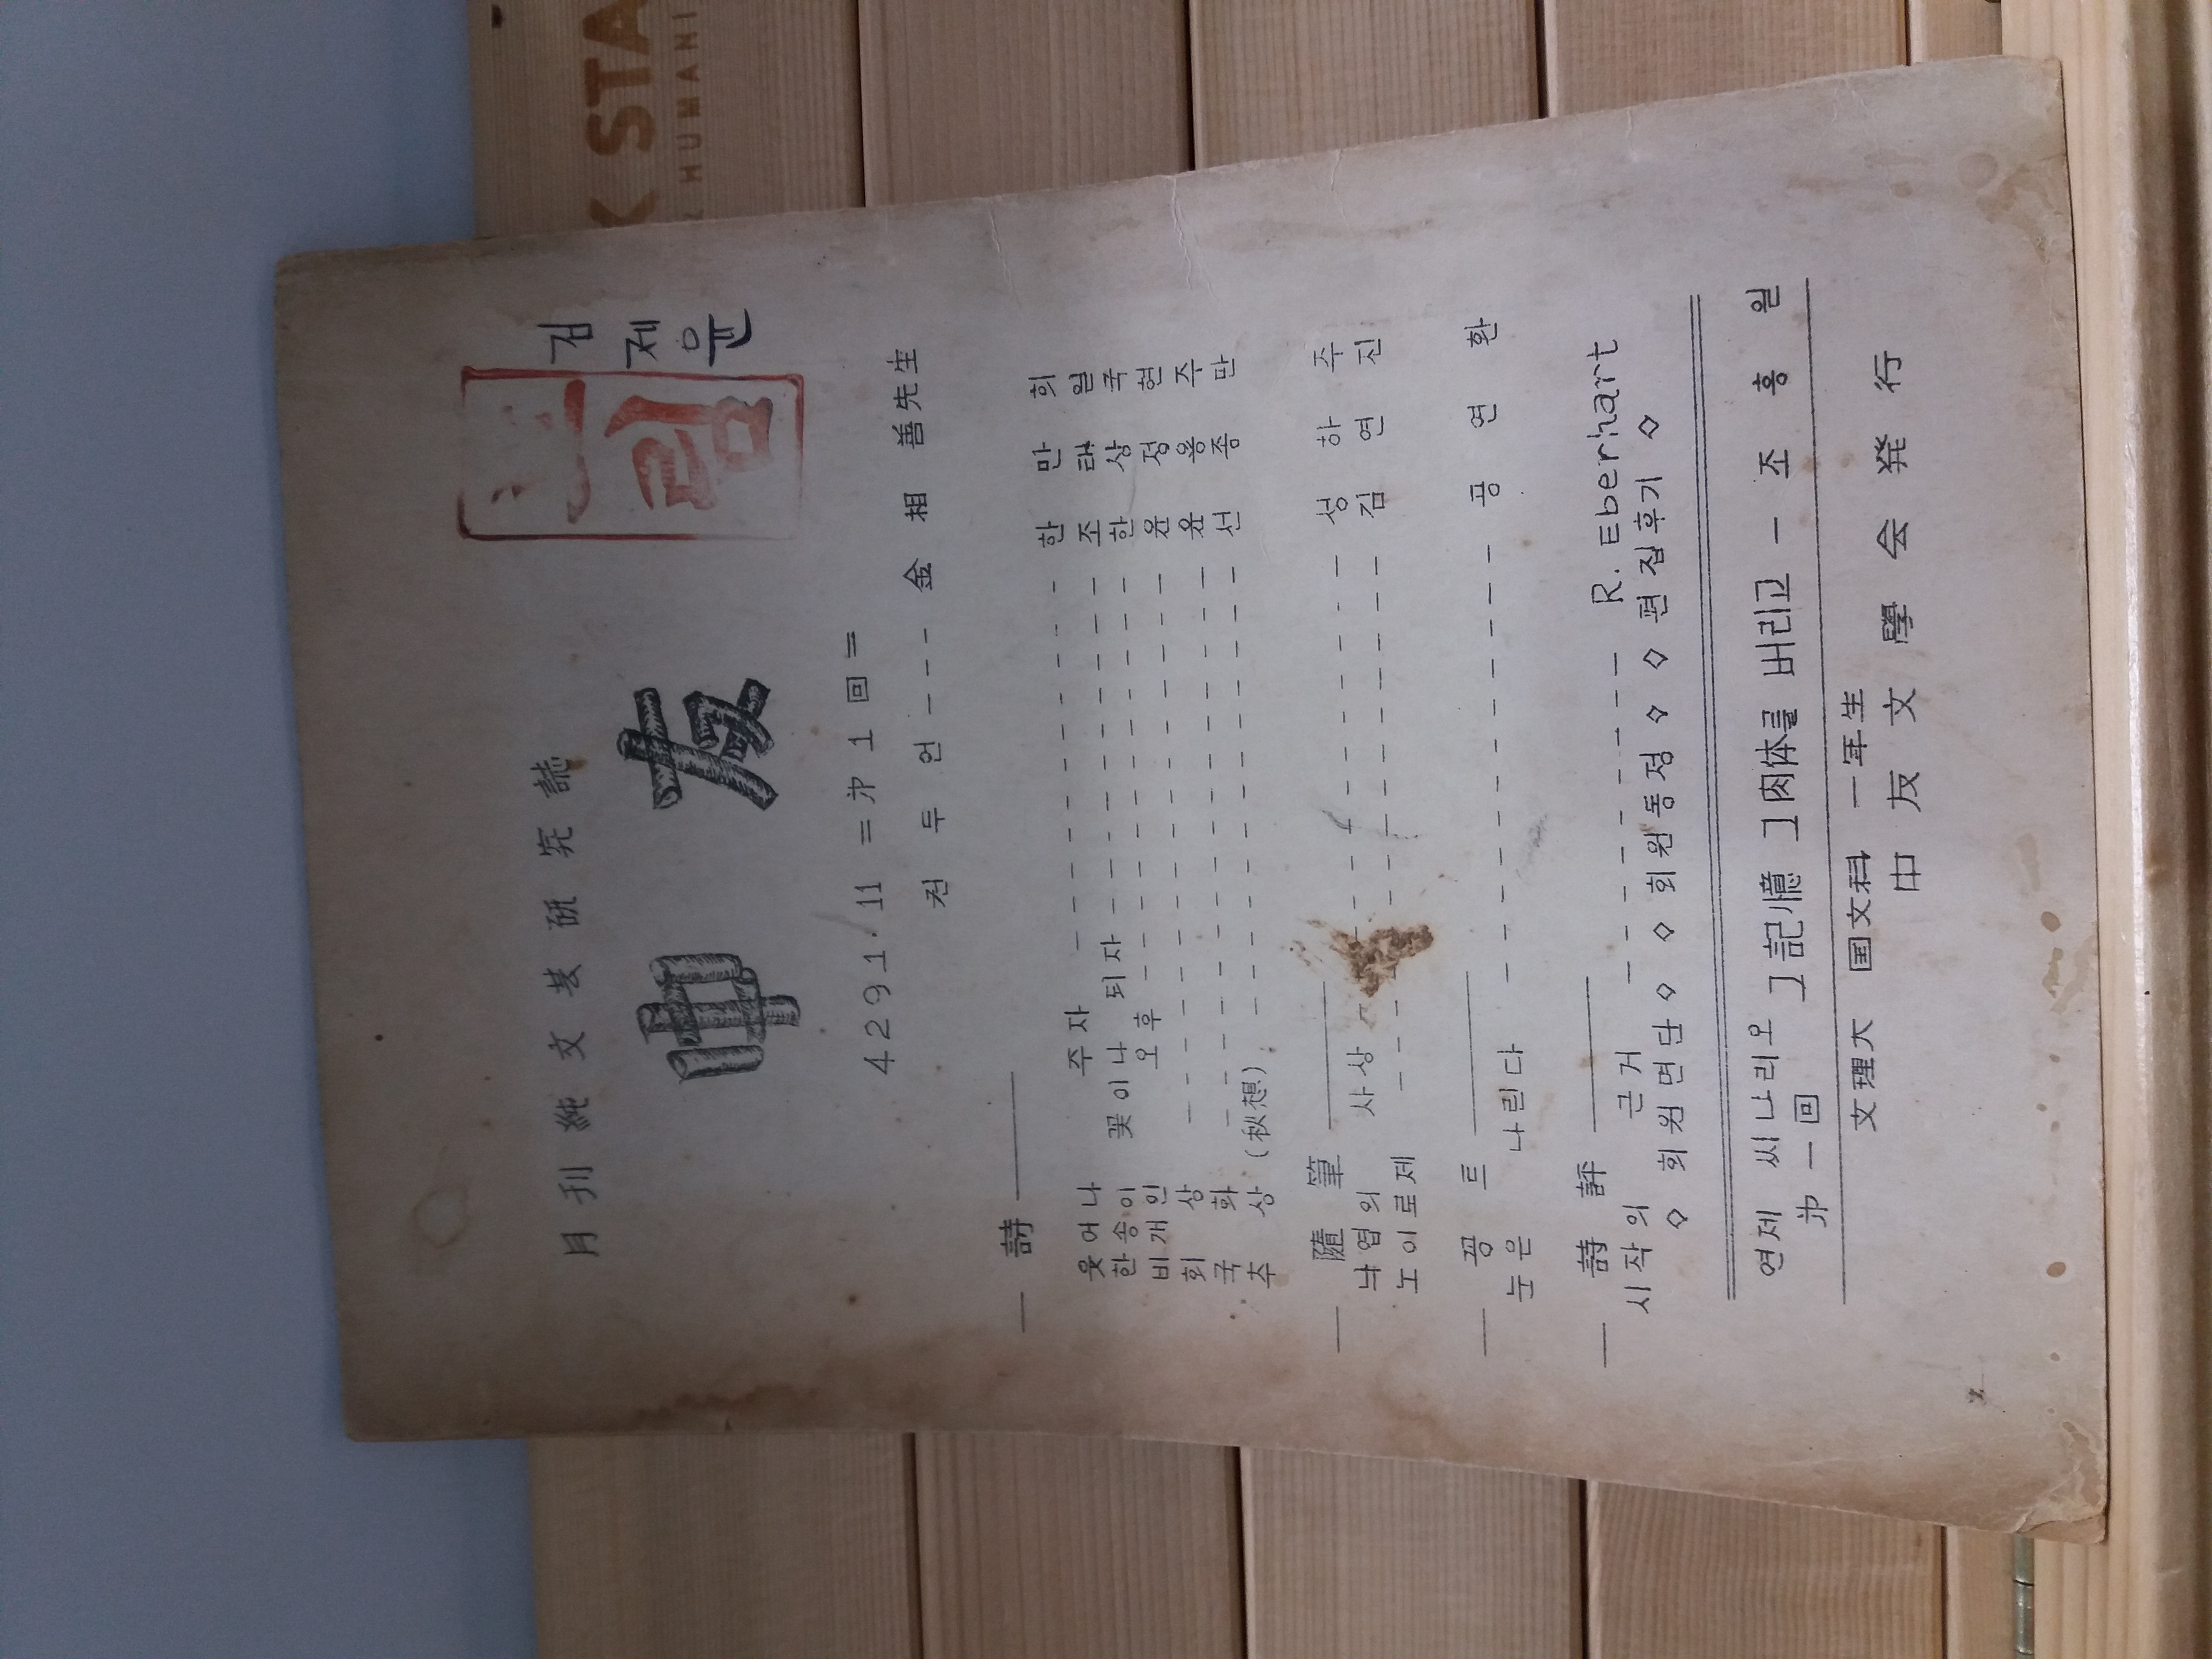 月刊純文芸研究誌
김제윤
中友
4291.11 = 才1回 =
권두언 --- 金相善先生
— 詩 —
웃어나 주자 --- 한만희
한송이 꽃이나 되자 --- 조태일
비개인 오후 --- 한상국
회상 --- 윤정현
국화 --- 윤용주
추상 (秋想) --- 선종만
— 隨筆 —
낙엽의 사상 --- 성하주
노이로제 --- 김연진
— 꽁트 —
눈은 나린다 --- 공연환
— 詩評 —
시작의 근거 --- R. Eberhart
◇ 회원면단 ◇ ◇ 회원동정 ◇ ◇ 편집후기 ◇
연제 씨나리오 그記憶 그肉体를 버리고 — 조홍일
才一回
文理大 国文科 一年生
中友文學会発行
K STA
HUMANI